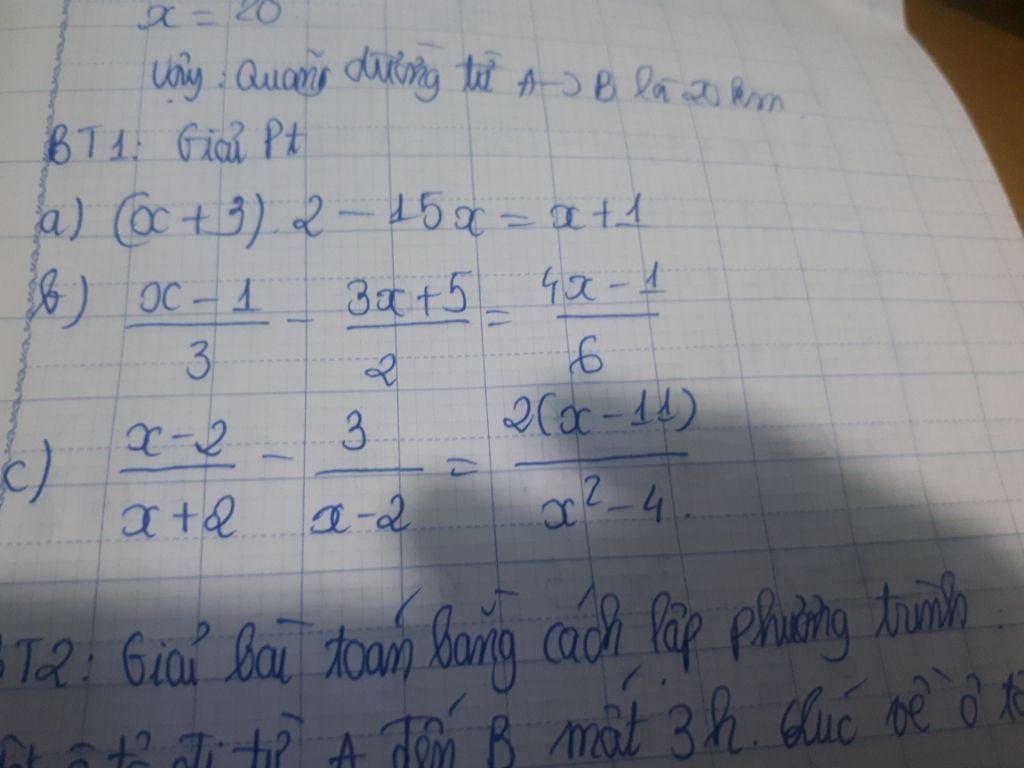 x = 20
Vậy: Quãng đường từ A → B là 20 km
BT1: Giải Pt
a) (x + 3) . 2 - 15x = x + 1
b) \frac{x - 1}{3} - \frac{3x + 5}{2} = \frac{4x - 1}{6}
c) \frac{x - 2}{x + 2} - \frac{3}{x - 2} = \frac{2(x - 11)}{x^2 - 4}.
BT2: Giải bài toán bằng cách lập phương trình.
ô tô đi từ A đến B mất 3h. Lúc về ô tô